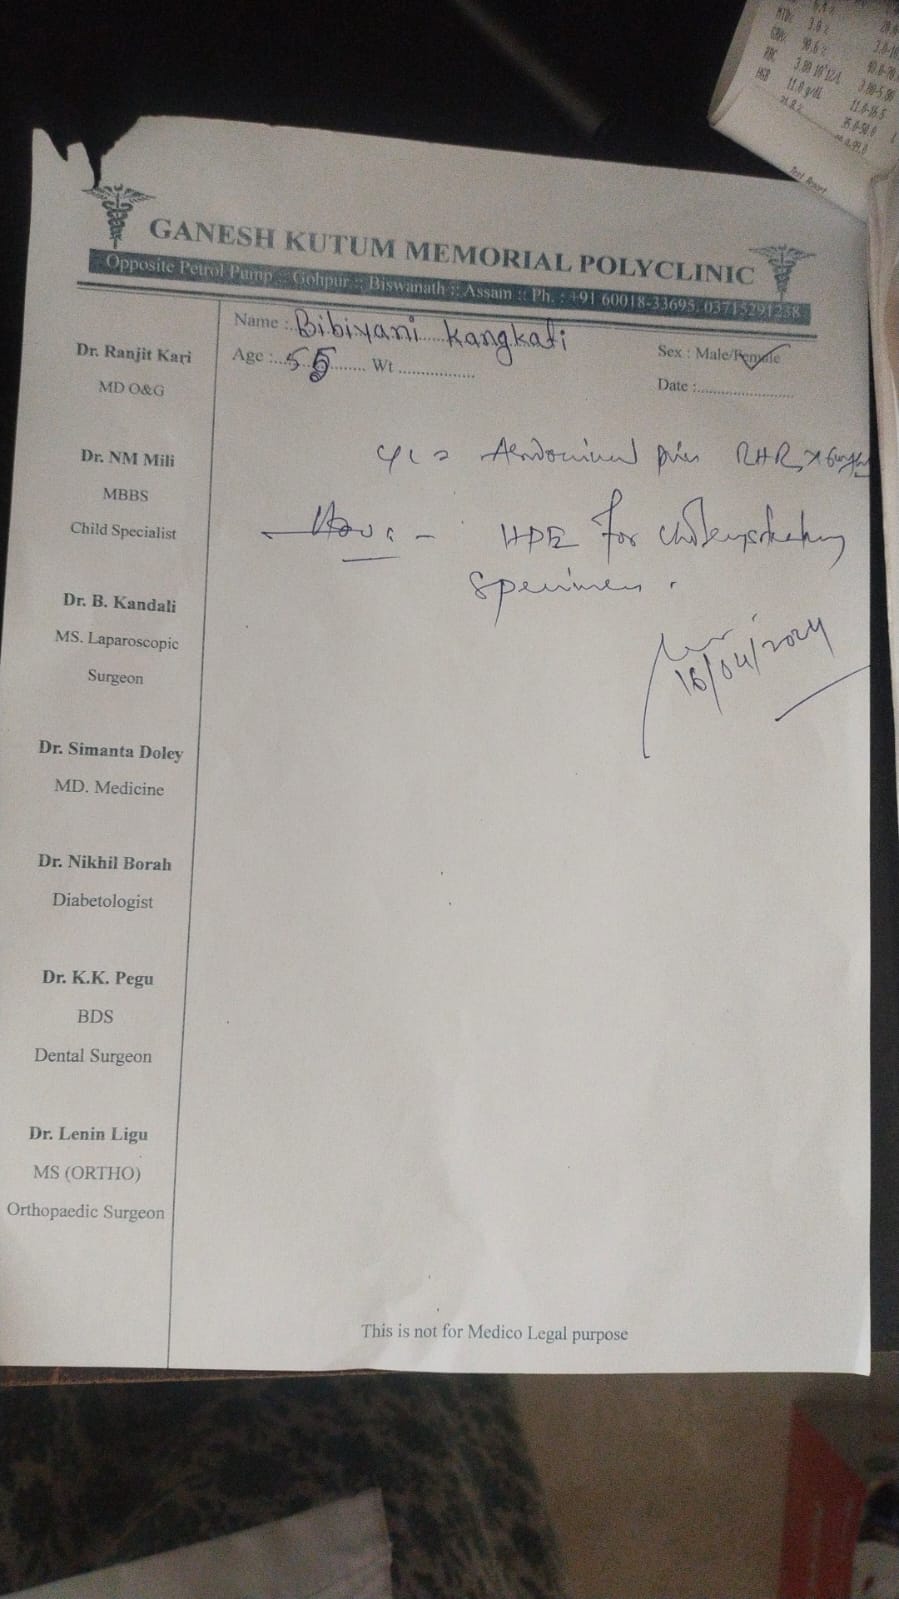 6.4 %
MID% 3.0 %
GRA% 90.6 %
RBC 3.80 10^12/L 3.80-5.80
HGB 11.0 g/dL 11.0-16.5
35.0-50.0
Test Report
GANESH KUTUM MEMORIAL POLYCLINIC
Opposite Petrol Pump :: Gohpur :: Biswanath :: Assam :: Ph. : +91 60018-33695, 03715291238
Name : Bibiyani Kangkati
Age : 55 Wt
Sex : Male/Female
Date :
Dr. Ranjit Kari
MD O&G
Dr. NM Mili
MBBS
Child Specialist
Dr. B. Kandali
MS. Laparoscopic
Surgeon
Dr. Simanta Doley
MD. Medicine
Dr. Nikhil Borah
Diabetologist
Dr. K.K. Pegu
BDS
Dental Surgeon
Dr. Lenin Ligu
MS (ORTHO)
Orthopaedic Surgeon
Abdominal pain
HPE for cholecystectomy
specimen.
16/04/2024
This is not for Medico Legal purpose